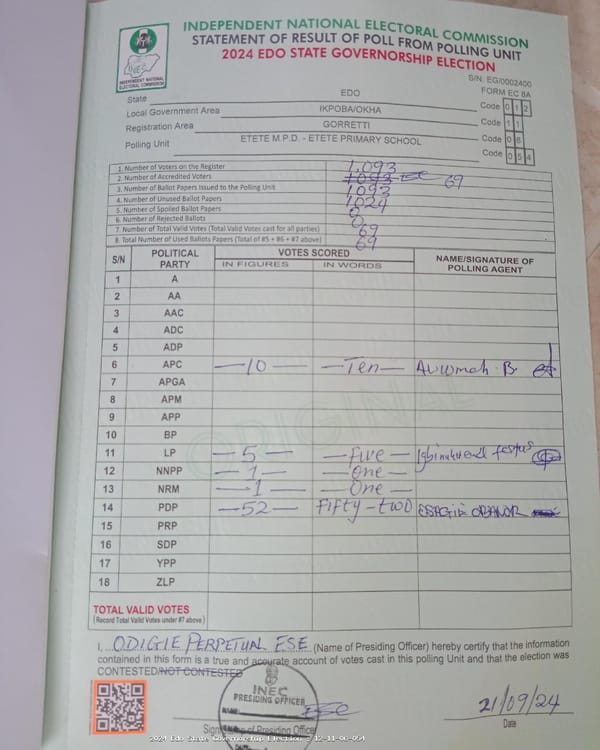 INDEPENDENT NATIONAL ELECTORAL COMMISSION
STATEMENT OF RESULT OF POLL FROM POLLING UNIT
2024 EDO STATE GOVERNORSHIP ELECTION
INEC
INDEPENDENT NATIONAL
ELECTORAL COMMISSION
S/N: EG/0002400
FORM EC 8A
State EDO Code 0 1 2
Local Government Area IKPOBA/OKHA Code 1 1
Registration Area GORRETTI Code 0 6
Polling Unit ETETE M.P.D. - ETETE PRIMARY SCHOOL Code 0 5 4
1. Number of Voters on the Register 1,093
2. Number of Accredited Voters 1093 69
3. Number of Ballot Papers Issued to the Polling Unit 1093
4. Number of Unused Ballot Papers 1024
5. Number of Spoiled Ballot Papers 0
6. Number of Rejected Ballots 0
7. Number of Total Valid Votes (Total Valid Votes cast for all parties) 69
8. Total Number of Used Ballots Papers (Total of #5 + #6 + #7 above) 69
S/N POLITICAL PARTY VOTES SCORED NAME/SIGNATURE OF POLLING AGENT
IN FIGURES IN WORDS
1 A
2 AA
3 AAC
4 ADC
5 ADP
6 APC —10— —Ten— Auwmah B.
7 APGA
8 APM
9 APP
10 BP
11 LP —5— —Five— festus
12 NNPP —1— —One—
13 NRM —1— —One—
14 PDP —52— Fifty-two
15 PRP
16 SDP
17 YPP
18 ZLP
ORIGINAL
TOTAL VALID VOTES
(Record Total Valid Votes under #7 above)
I, ODIGIE PERPETUAL ESE (Name of Presiding Officer) hereby certify that the information
contained in this form is a true and accurate account of votes cast in this polling Unit and that the election was
CONTESTED/NOT CONTESTED
INEC
PRESIDING OFFICER
NAME:
21/09/24
Signature of Presiding Officer
Date
2024 Edo State Governorship Election - 12-11-06-054